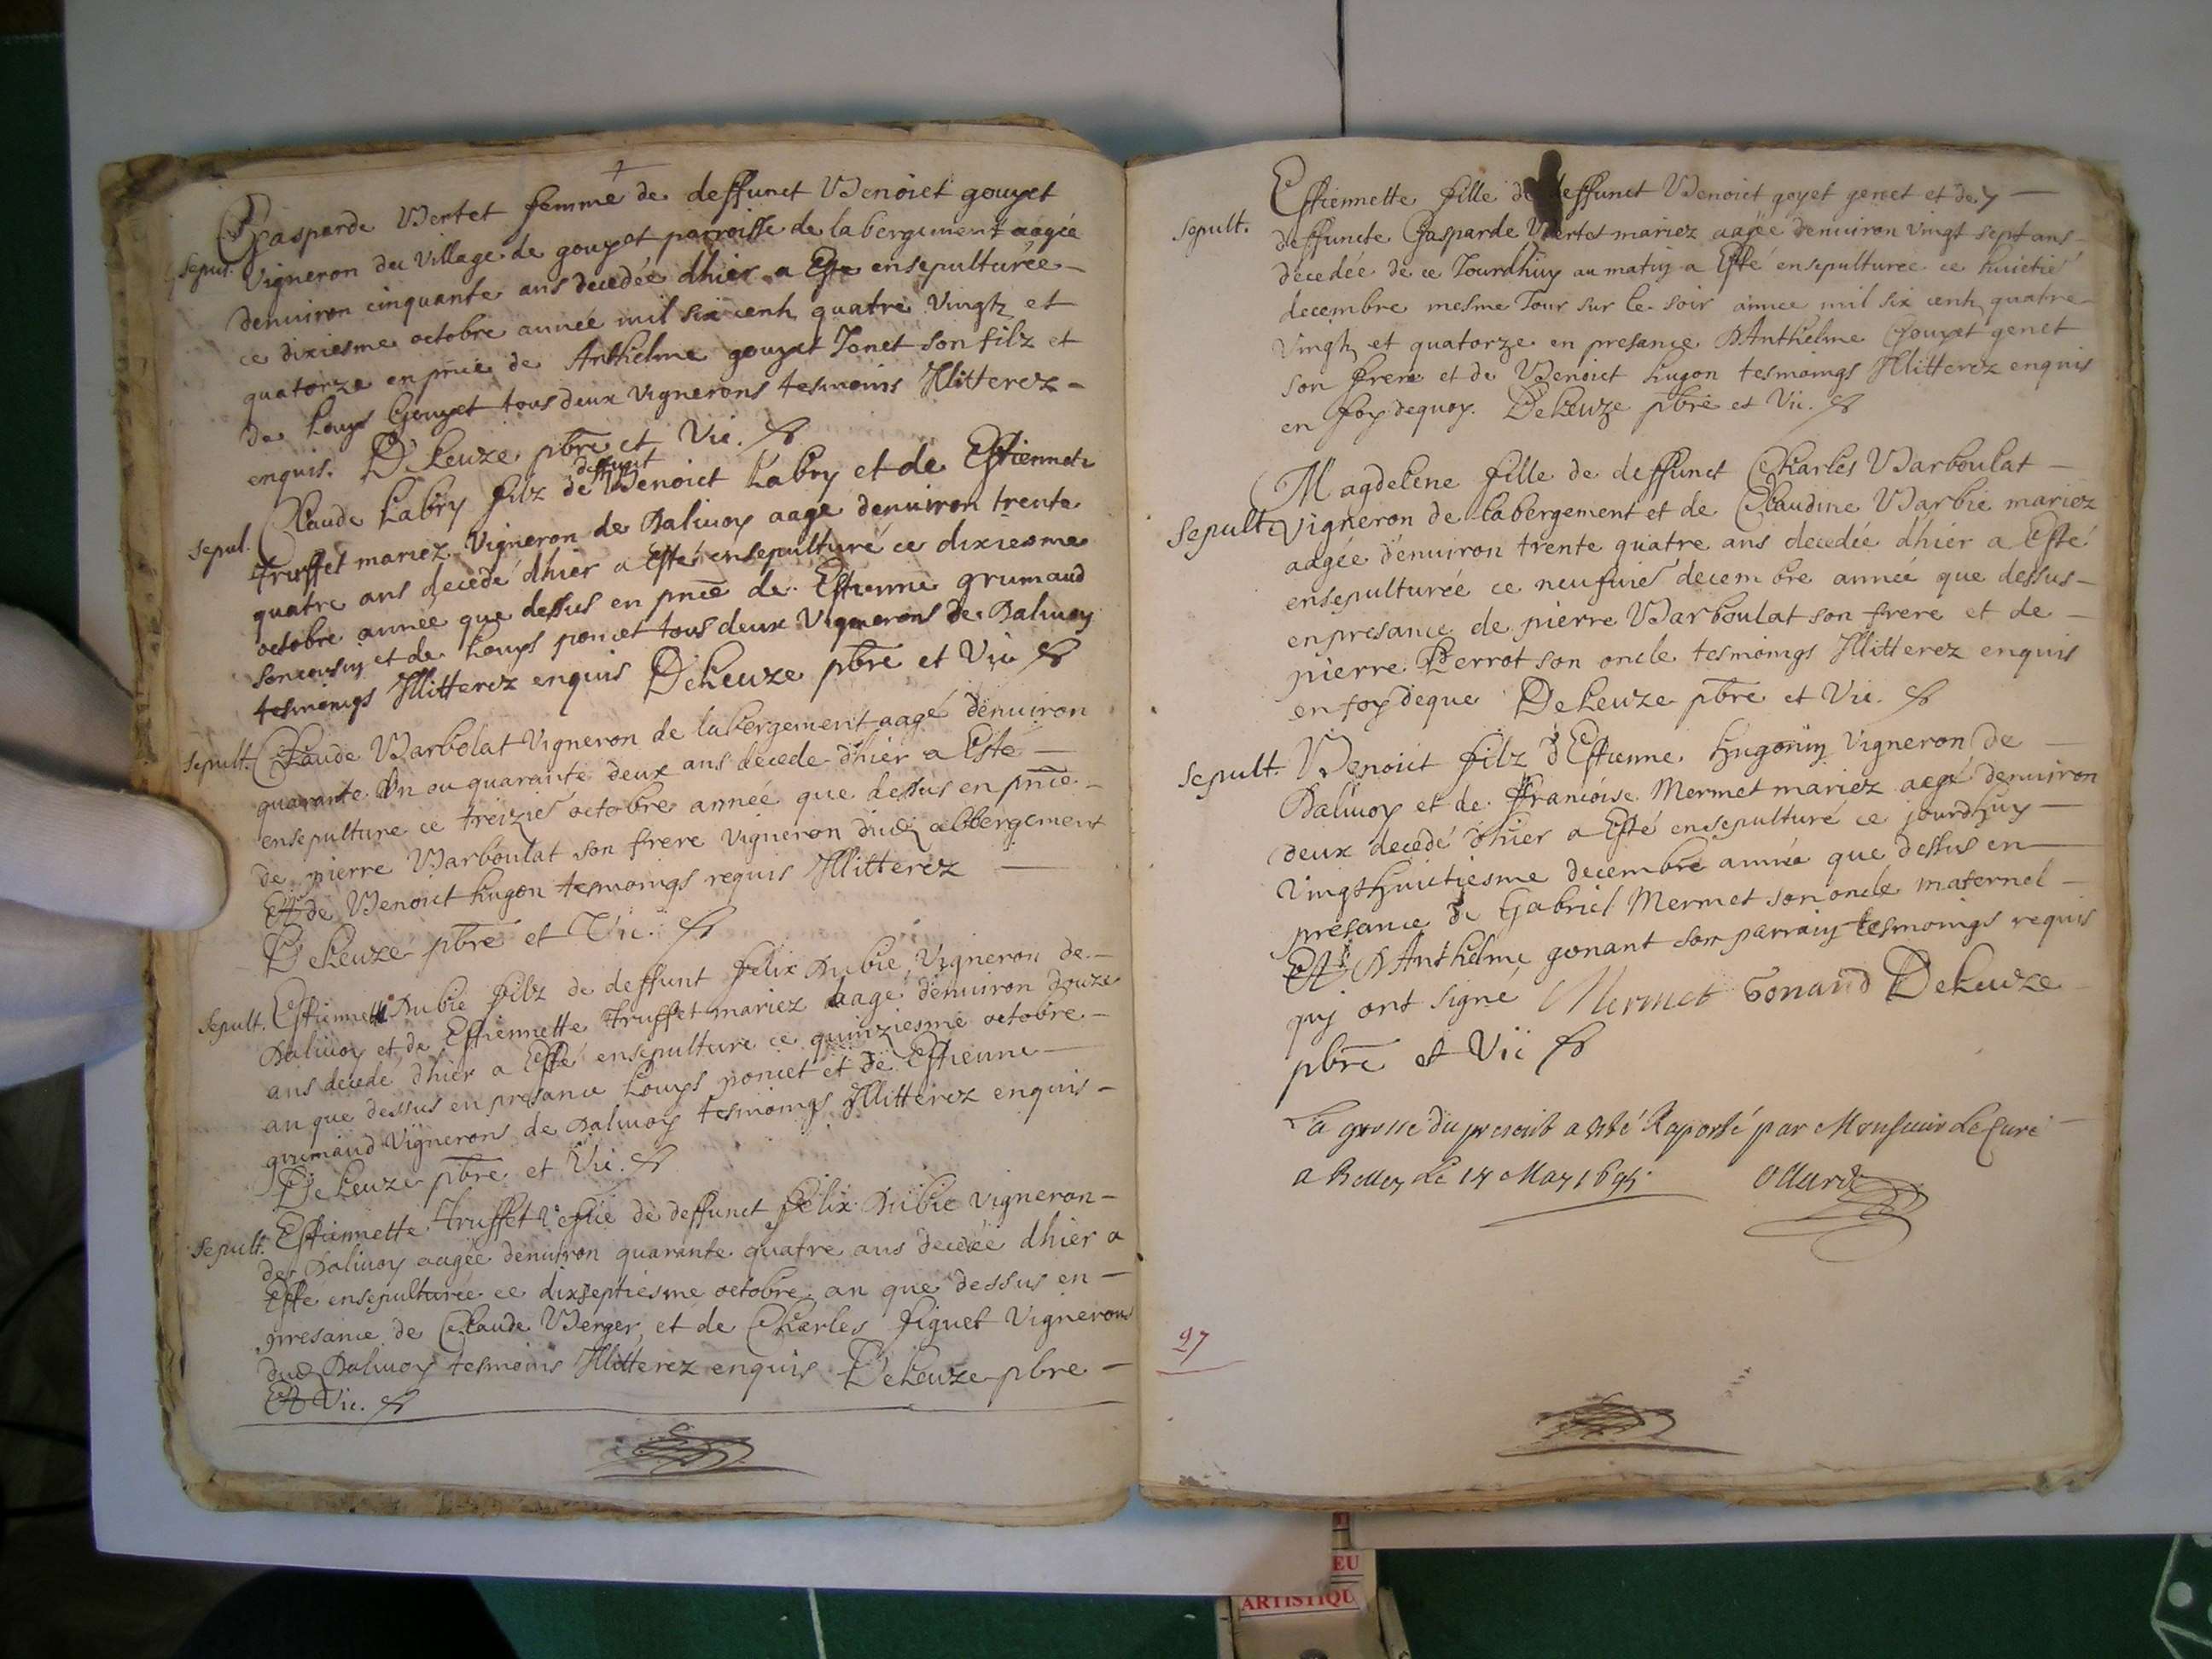 Gasparde Bertet femme de deffunct Benoict gouyet
seput. Vigneron du Village de gouyet parroisse de labergement aagée
denuiron cinquante ans decedée dhier a Este ensepulturée
ce dixiesme octobre année mil six centz quatre Vingtz et
quatorze en pnce de Anthelme gouyet Jenet son filz et
de Louys Gouyet tous deux Vignerons tesmoins Illitterez
enquis. DeLeuze pbre et Vic.
deffunt
Claude Labry filz de Benoict Labry et de Estiennete
sepul. truffet mariez Vigneron de Daliuoy aagé denuiron trente
quatre ans decedé dhier a Esté ensepulturé ce dixiesme
octobre année que dessus en pnce de Estienne grumaud
son cousin et de Louys poncet tous deux Vignerons de Daliuoy
tesmoings Illitterez enquis DeLeuze pbre et Vic
sepult. Claude Barbolat Vigneron de labergement aagé denuiron
quarante Un ou quarante deux ans decede dhier a Esté
ensepulture ce treizie octobre année que dessus en pnce
de pierre Barboulat son frere Vigneron dud albergement
Et de Benoict hugon tesmoings requis Illitterez
DeLeuze pbre et Vic.
Sepult. Estienne Dubie filz de deffunt felix Dubie Vigneron de
Daliuoy et de Estiennette truffet mariez aagé denuiron douze
ans decedé dhier a Esté ensepulture ce quinziesme octobre
an que dessus en presance Louys poncet et de Estienne
grumaud Vignerons de Daliuoy tesmoings Illitterez enquis
DeLeuze pbre et Vic.
Sepult. Estiennette truffet Vefue de deffunct felix Dubie Vigneron
de Daliuoy aagée denuiron quarante quatre ans decedée dhier a
Esté ensepulturée ce dixseptiesme octobre an que dessus en
presance de Claude Berger et de Charles figuet Vignerons
dud Daliuoy tesmoins Illitterez enquis DeLeuze pbre
Et Vic.
Estiennette fille de deffunct Benoict goyet genet et de
sepult. deffuncte Gasparde Bertet mariez aagée denuiron vingt sept ans
decedée de ce Jourdhuy au matin a Esté ensepulturée ce huictie
decembre mesme Jour sur le soir année mil six centz quatre
Vingtz et quatorze en presance DAnthelme Gouyet genet
son frere et de Benoict hugon tesmoings Illitterez enquis
en foy dequoy. DeLeuze pbre et Vic.
Magdelene fille de deffunct Charles Barboulat
Sepult Vigneron de labergement et de Claudine Barbie mariez
aagée denuiron trente quatre ans decedée dhier a Esté
ensepulturée ce neufuie decembre année que dessus
en presance de pierre Barboulat son frere et de
pierre Perrot son oncle tesmoings Illitterez enquis
en foy deque DeLeuze pbre et Vic.
sepult. Benoict filz dEstienne hugonin Vigneron de
Daliuoy et de francoise Mermet mariez aegé denuiron
deux decedé dhier a Esté ensepulturé ce jourdhuy
Vingthuictiesme decembre année que dessus en
presance de Gabriel Mermet son oncle maternel
Et DAnthelme gonant son parrain tesmoings requis
quj ont signé Mermet Gonand DeLeuze
pbre et Vic
La grosse du present a esté Raporté par Monsieur le Curé
a Belley le 14 May 1695. Odurd
97
EU
ARTISTIQU